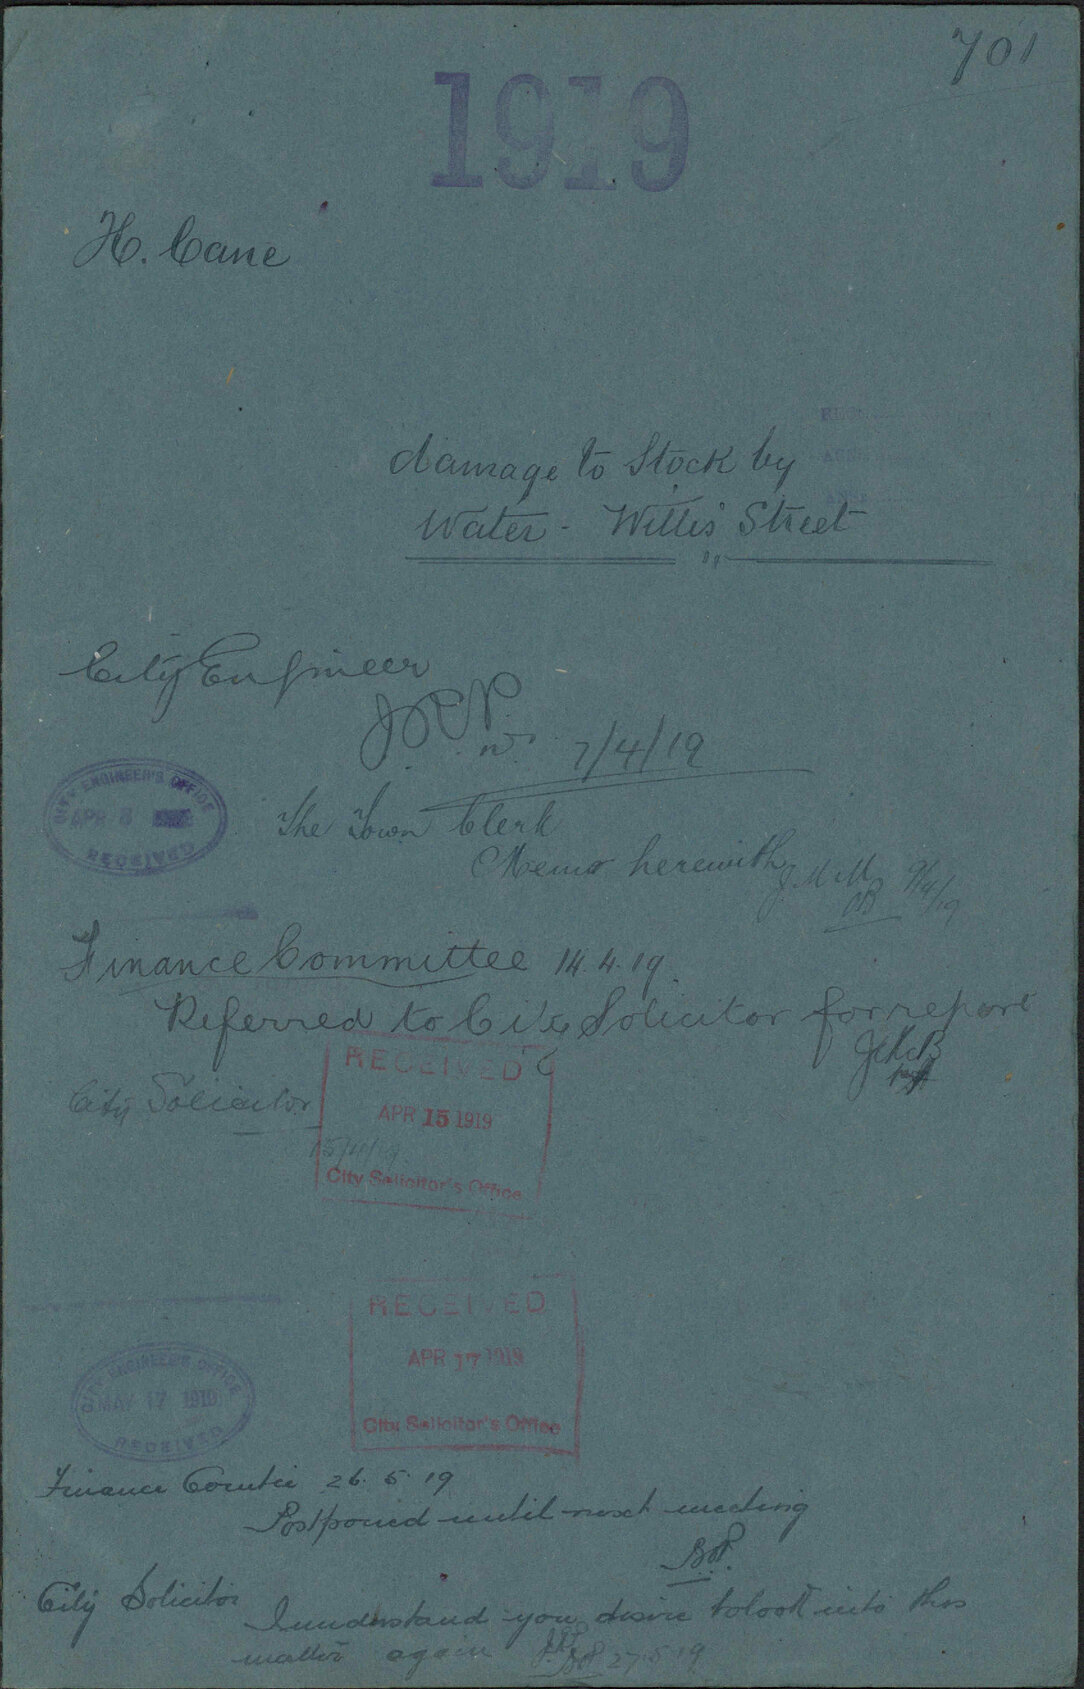 701
1919
H. Cane
damage to Stock by
Water - Willis Street
City Engineer
7/4/19
CITY ENGINEER'S OFFICE
APR 8
The Town Clerk
Memo herewith
9/4/19
Finance Committee 14.4.19.
Referred to City Solicitor for report
RECEIVED
APR 15 1919
City Solicitor's Office
City Solicitor
15/4/19.
RECEIVED
APR 17 1919
City Solicitor's Office
CITY ENGINEER'S OFFICE
MAY 17 1919
RECEIVED
Finance Comtee 26.5.19
Postponed until next meeting
City Solicitor
I understand you desire to look into this
matter again 27.5.19